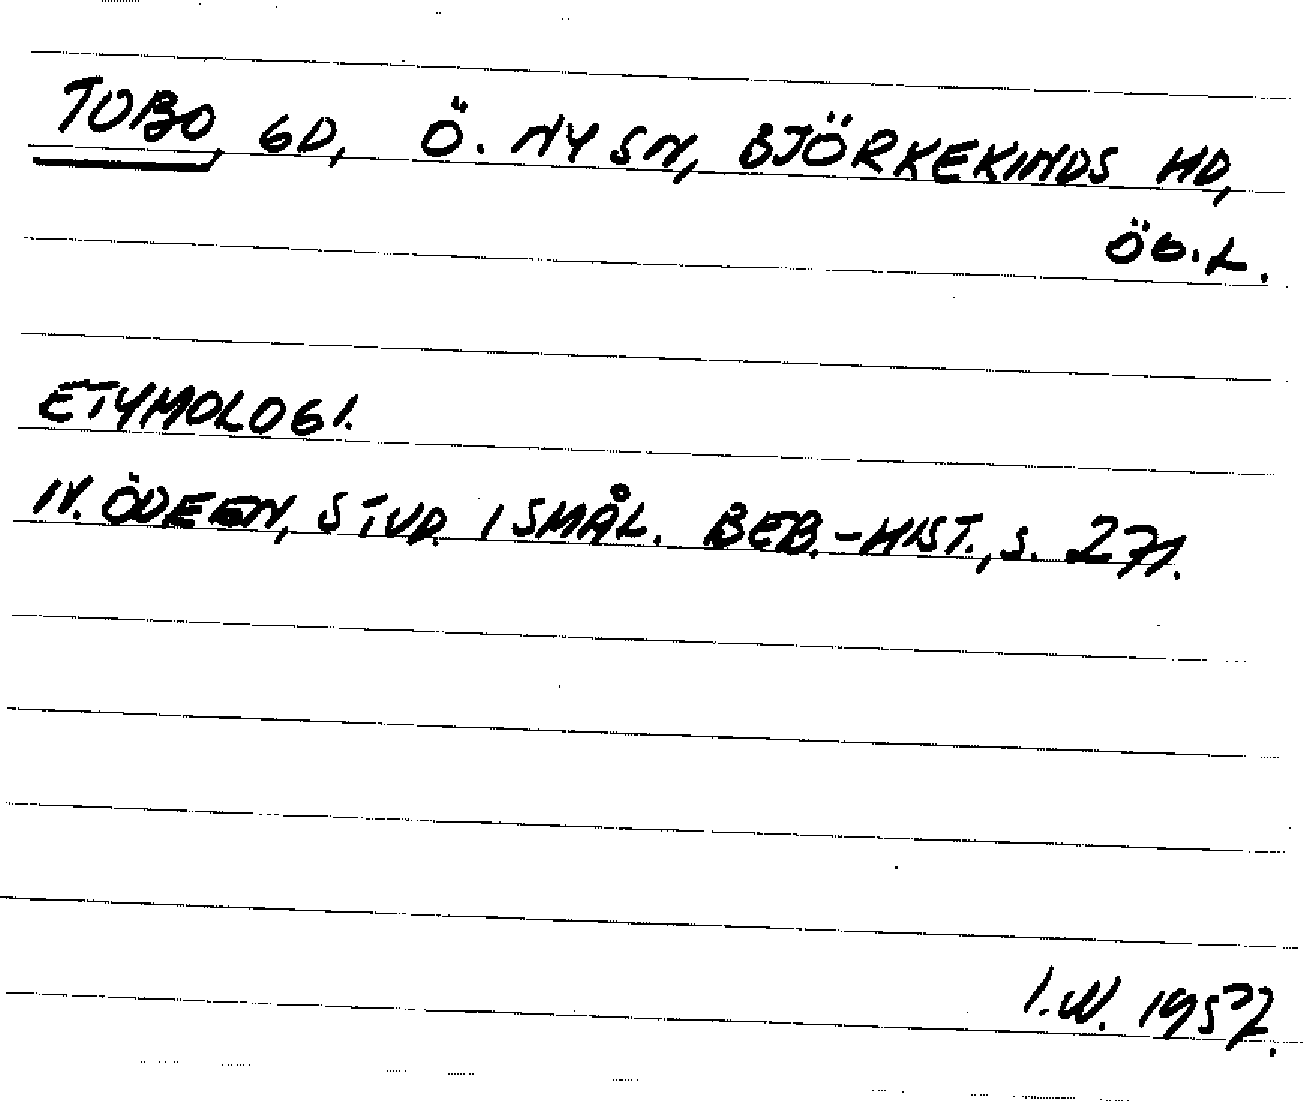 TOBO, GD, Ö. NY SN, BJÖRKEKINDS HD,
ÖG.L.
ETYMOLOGI.
N. ÖDEEN, STUD. I SMÅL. BEB.-HIST., S. 271.
I.W. 1957.